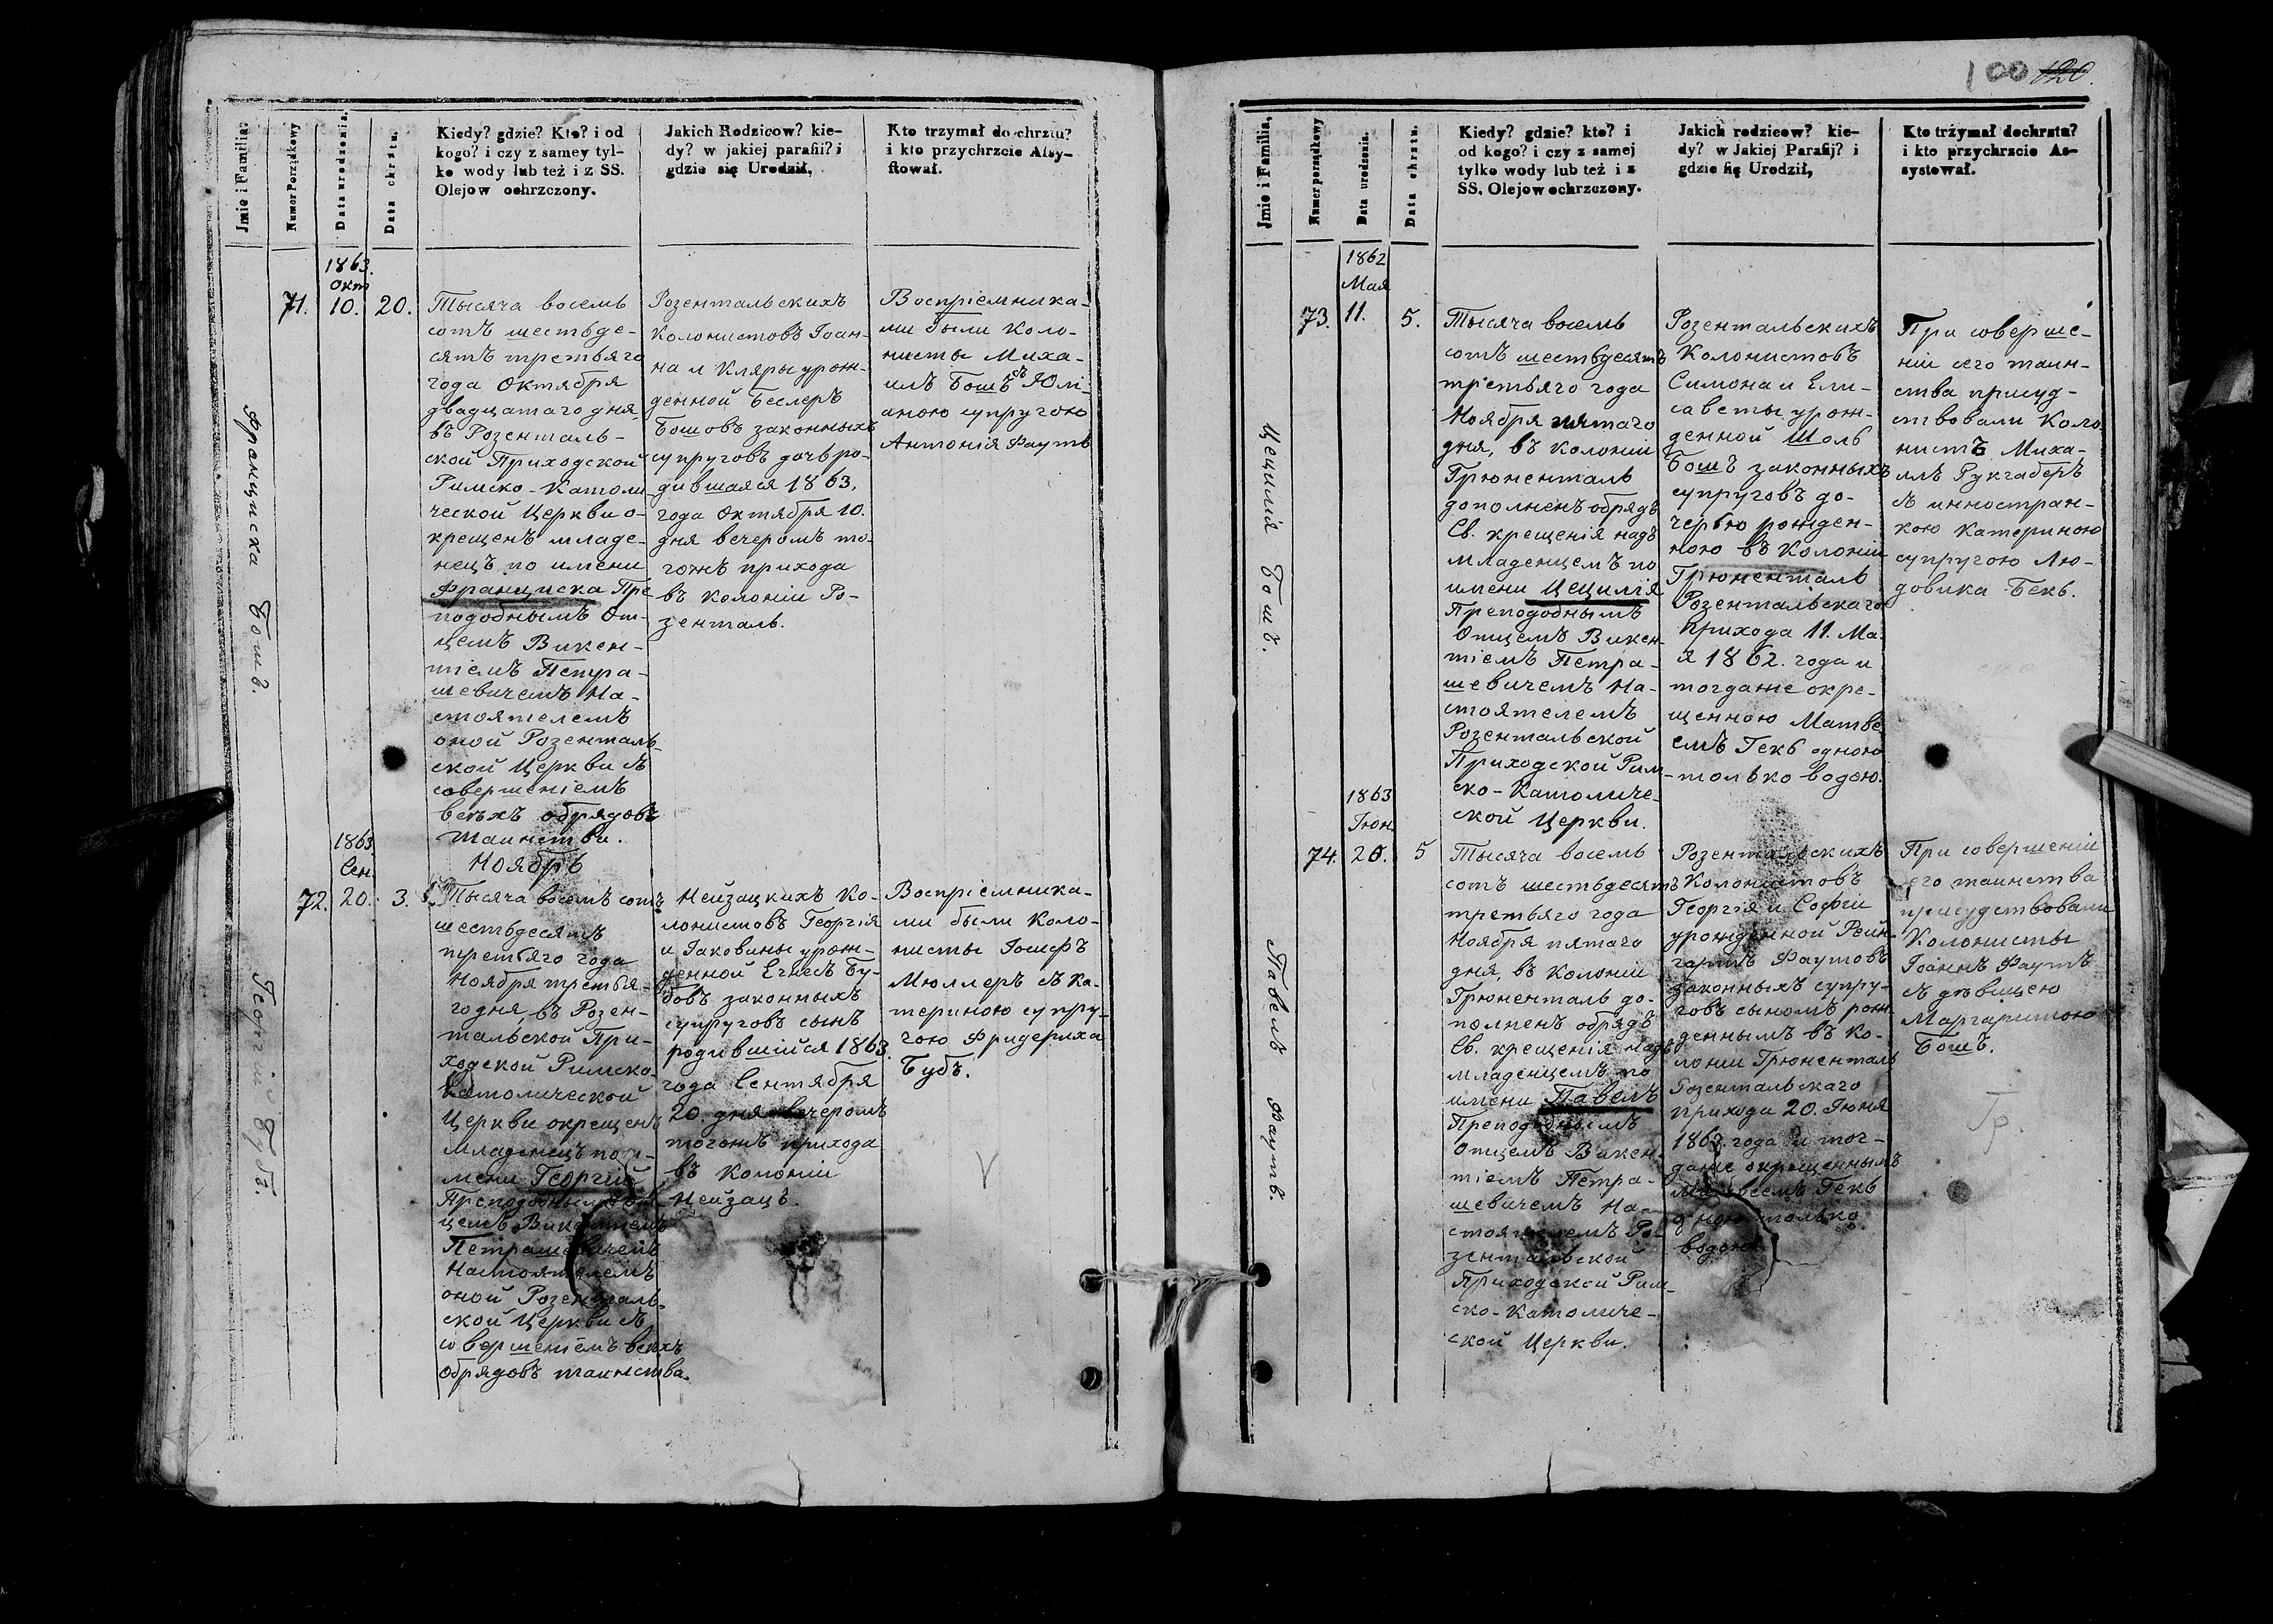 100 120.
Jmie i Familia:
Numer Porządkowy
Data urodzenia.
Data chrztu.
Kiedy? gdzie? Kto? i od
kogo? i czy z samey tyl-
ko wody lub też i z SS.
Olejow ochrzczony.
Jakich Rodzicow? kie-
dy? w jakiej parafii? i
gdzie się Urodził,
Kto trzymał do chrztu?
i kto przychrzcie Assy-
stował.
Франциска Бошъ.
71.
1863.
Окт
10.
20.
Тысяча восемь
сотъ шестьде-
сятъ третьяго
года Октября
двадцатаго дня
въ Розенталь-
ской Приходской
Римско-Католи-
ческой Церкви о-
крещенъ младе-
нецъ по имени
Франциска Пре
подобнымъ От-
цемъ Викен-
тіемъ Петра-
шевичемъ На-
стоятелемъ
оной Розенталь-
ской Церкви съ
совершеніемъ
всѣхъ обрядовъ
Таинства.
Розентальскихъ
Колонистовъ Іоан-
на и Кляры урож-
денной Беслеръ
Бошовъ законныхъ
супруговъ дочь ро-
дившаяся 1863.
года Октября 10.
дня вечеромъ то-
гожъ прихода
въ Колоніи Ро-
зенталь.
Воспріемника-
ми были Коло-
нисты Миха-
илъ Бошъ съ Юлі-
аною супругою
Антонія Фаутъ
Георгій Бубъ.
72.
1863
Сен.
20.
3.
Ноябрь
Тысяча восемь сотъ
шестьдесятъ
третьяго года
Ноября третья-
го дня, въ Розен-
тальской При-
ходской Римско-
Католической
Церкви окрещенъ
младенецъ по и-
мени Георгій
Преподобнымъ От-
цемъ Викентіемъ
Петрашевичемъ
Настоятелемъ
оной Розенталь-
ской Церкви съ
совершеніемъ всѣхъ
обрядовъ таинства.
Нейзацкихъ Ко-
лонистовъ Георгія
и Іаковины урож-
денной Егнесъ Бу-
бовъ законныхъ
супруговъ сынъ
родившійся 1863.
года Сентября
20 дня вечеромъ
тогожъ прихода
въ Колоніи
Нейзацъ.
Воспріемника-
ми были Коло-
нисты Іосифъ
Мюллеръ съ Ка-
териною супру-
гою Фридериха
Бубъ.
V
Jmie i Familia,
Numer porządkowy
Data urodzenia.
Data chrztu.
Kiedy? gdzie? kto? i
od kogo? i czy z samej
tylko wody lub też i z
SS. Olejow ochrzczony.
Jakich rodzicow? kie-
dy? w Jakiej Parafij? i
gdzie się Urodził,
Kto trzymał dochrztu?
i kto przychrzcie As-
systował.
Цецилія Бошъ.
73.
1862
Мая
11.
5.
Тысяча восемь
сотъ шестьдесятъ
третьяго года
Ноября пятаго
дня, въ Колоніи
Грюненталь
дополненъ обрядъ
Св. крещенія надъ
младенцемъ по
имени Цецилія
Преподобнымъ
Отцемъ Викен-
тіемъ Петра-
шевичемъ На-
стоятелемъ
Розентальской
Приходской Рим-
ско-Католиче-
ской Церкви.
Розентальскихъ
Колонистовъ
Симона и Ели-
саветы урож-
денной Шоль
Бошъ законныхъ
супруговъ до-
черью рожден-
ною въ Колоніи
Грюненталь
Розентальскаго
Прихода 11. Ма-
я 1862. года и
тогдаже окре-
щенною Матвѣ
емъ Гекъ одною
только водою.
При соверше-
ніи сего таин-
ства присуд-
ствовали Коло
нистъ Миха-
илъ Рукгаберъ
съ инностран-
кою Катериною
супругою Лю-
довика Бекъ.
Павелъ Фаутъ.
74.
1863
Іюн.
20.
5
Тысяча восемь
сотъ шестьдесятъ
третьяго года
Ноября пятаго
дня, въ Колоніи
Грюненталь до-
полненъ обрядъ
Св. крещенія надъ
младенцемъ по
имени Павелъ
Преподобнымъ
Отцемъ Викен-
тіемъ Петра-
шевичемъ На-
стоятелемъ Ро-
зентальской
Приходской Рим-
ско-Католиче-
ской Церкви.
Розентальскихъ
Колонистовъ
Георгія и Софіи
урожденной Рейн-
гартъ Фаутовъ
законныхъ супру-
говъ сыномъ рож-
деннымъ въ Ко-
лоніи Грюненталь
Розентальскаго
прихода 20. Іюня
1863. года и тог-
даже окрещеннымъ
Матвеемъ Гекъ
одною только
водою.
При совершеніи
сего таинства
присудствовали
Колонисты
Іоаннъ Фаутъ
съ дѣвицею
Маргаритою
Бошъ.
Гр.